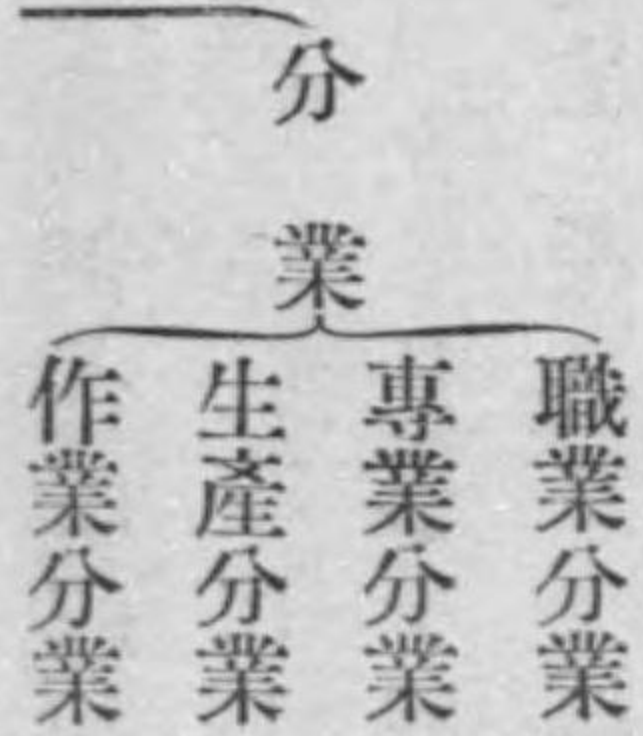 分業
職業分業
專業分業
生產分業
作業分業